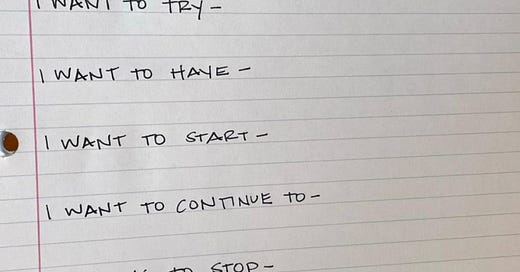 I WANT TO TRY –
I WANT TO HAVE –
I WANT TO START –
I WANT TO CONTINUE TO –
TO STOP –